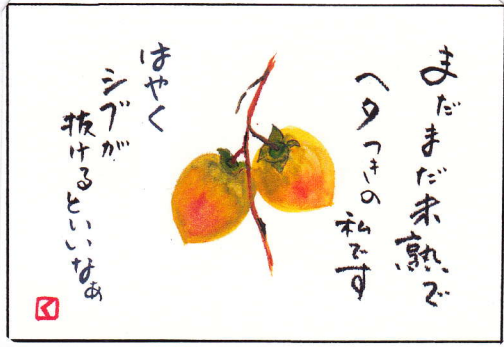 まだまだ未熟で
ヘタつきの私です
はやく
シブが
抜けるといいなぁ
く